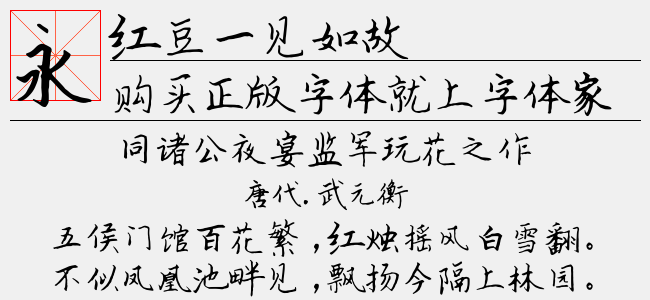 永
红豆一见如故
购买正版字体就上字体家
同诸公夜宴监军玩花之作
唐代.武元衡
五侯门馆百花繁,红烛摇风白雪翻。
不似凤凰池畔见,飘扬今隔上林园。